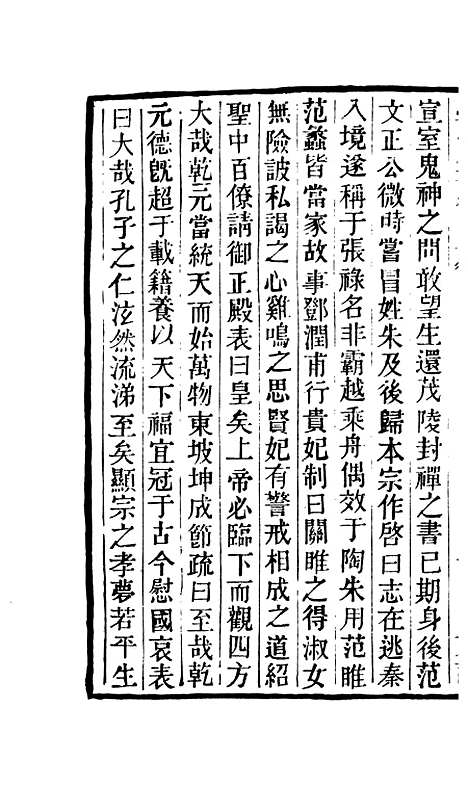 宣室鬼神之問敢望生還茂陵封禪之書已期身後范
文正公微時嘗冒姓朱及後歸本宗作啓曰志在逃秦
入境遂稱于張祿名非霸越乘舟偶效于陶朱用范睢
范蠡皆當家故事鄧潤甫行貴妃制曰關雎之得淑女
無險詖私謁之心雞鳴之思賢妃有警戒相成之道紹
聖中百僚請御正殿表曰皇矣上帝必臨下而觀四方
大哉乾元當統天而始萬物東坡坤成節疏曰至哉乾
元德旣超于載籍養以天下福宜冠于古今慰國哀表
曰大哉孔子之仁泫然流涕至矣顯宗之孝夢若平生